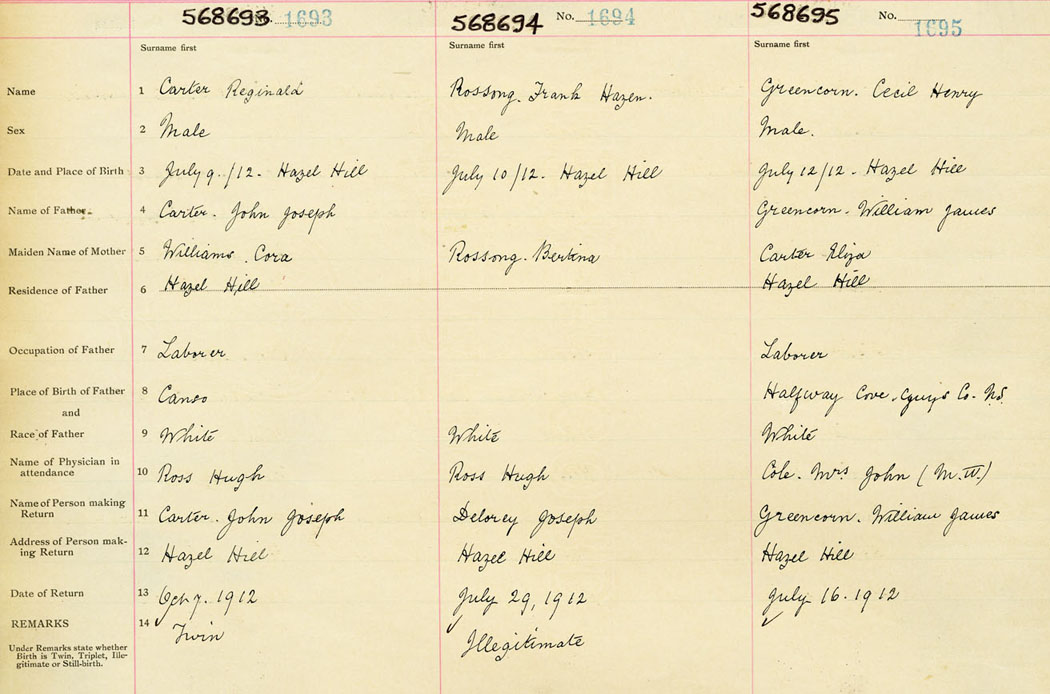 568693 1693 568694 No. 1694 568695 No. 1695
Surname first Surname first Surname first
Name 1 Carter Reginald Rossong. Frank Hazen. Greencorn. Cecil Henry
Sex 2 Male Male Male.
Date and Place of Birth 3 July 9./12. Hazel Hill July 10/12. Hazel Hill July 12/12. Hazel Hill
Name of Father 4 Carter. John Joseph Greencorn. William James
Maiden Name of Mother 5 Williams. Cora Rossong. Bertina Carter Eliza
Residence of Father 6 Hazel Hill Hazel Hill
Occupation of Father 7 Laborer Laborer
Place of Birth of Father 8 Canso Halfway Cove, Guys Co. N.S.
and
Race of Father 9 White White White
Name of Physician in
attendance 10 Ross Hugh Ross Hugh Cole. Mrs John (M.W.)
Name of Person making
Return 11 Carter. John Joseph Delorey Joseph Greencorn. William James
Address of Person mak-
ing Return 12 Hazel Hill Hazel Hill Hazel Hill
Date of Return 13 Oct 7. 1912 July 29, 1912 July 16. 1912
REMARKS 14 Twin Illegitimate
Under Remarks state whether
Birth is Twin, Triplet, Ille-
gitimate or Still-birth.